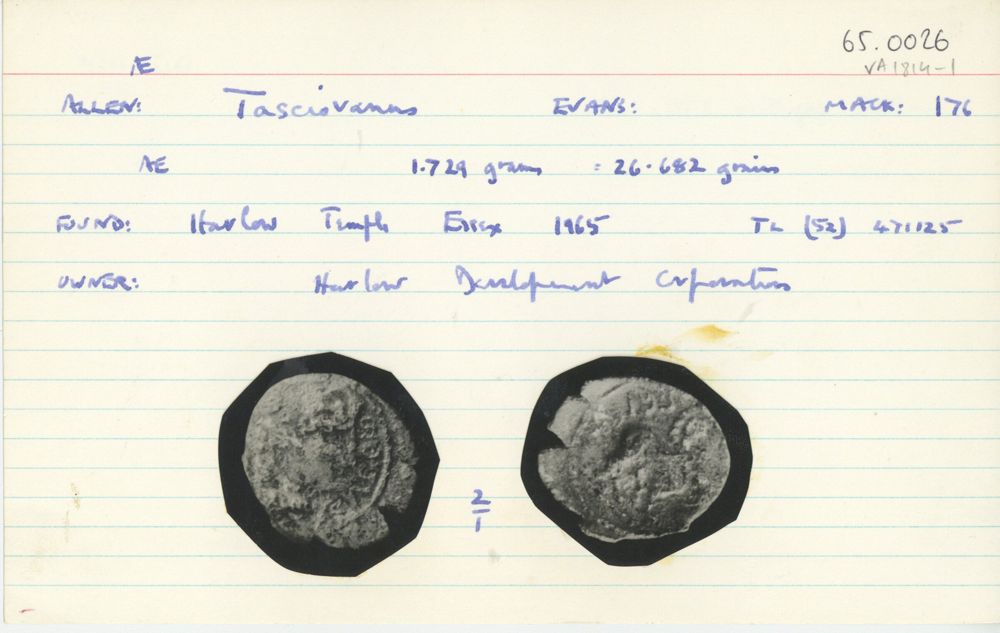 65.0026
VA1814-1
Æ
ALLEN: Tasciovanus EVANS: MACK: 176
Æ 1.729 grams = 26.682 grains
FOUND: Harlow Temple Essex 1965 TL (52) 471125
OWNER: Harlow Development Corporation
2/1